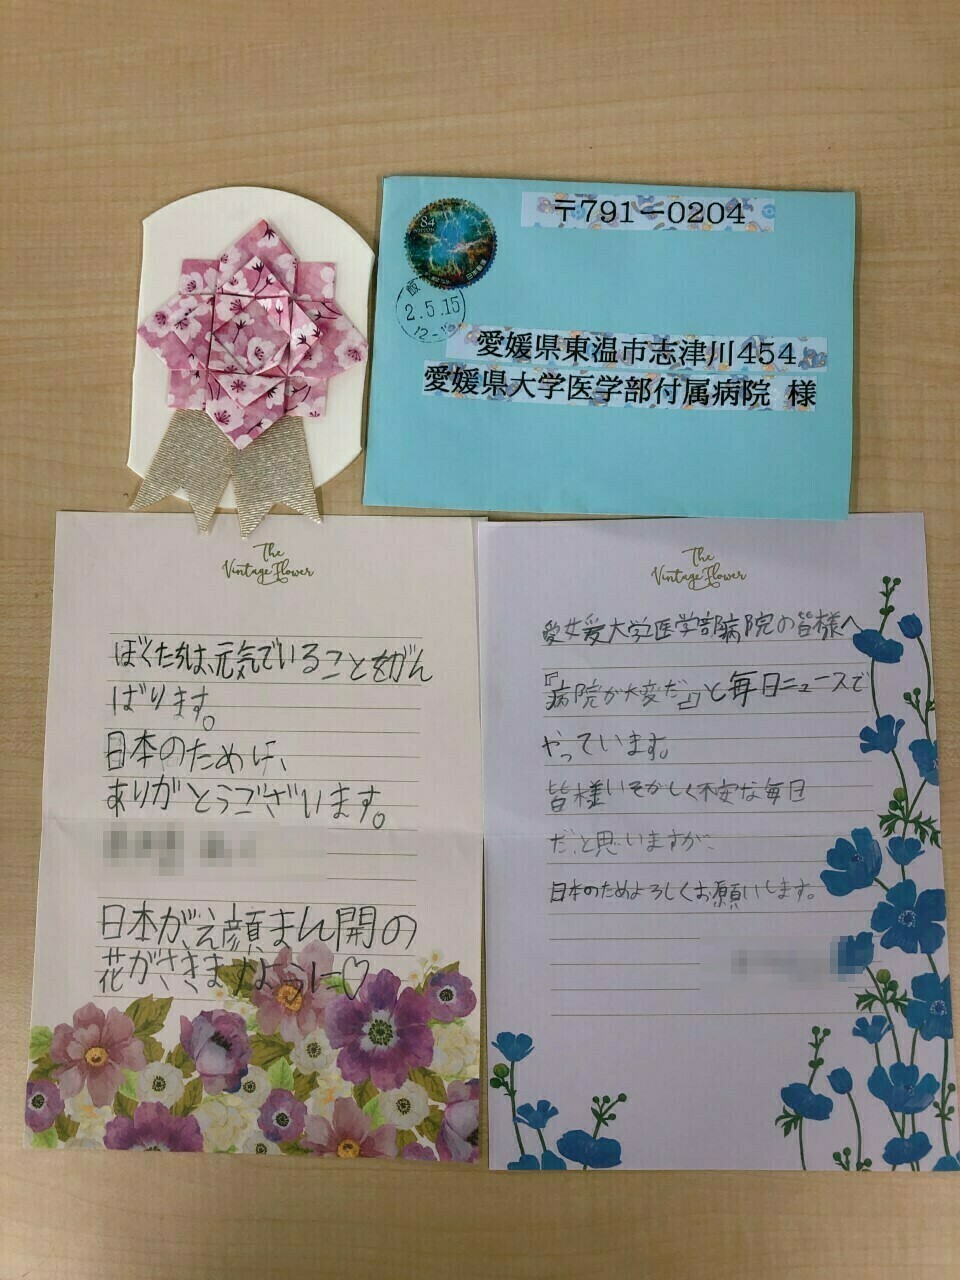 84
NIPPON
日本郵便
飯
2.5.15
12-
〒791-0204
愛媛県東温市志津川454
愛媛県大学医学部付属病院 様
The
Vintage Flower
ぼくたちは、元気でいることをがん
ばります。
日本のために、
ありがとうございます。
日本が、え顔まん開の
花がさきますように♡
The
Vintage Flower
愛媛大学医学部病院の皆様へ
『病院が大変だ』と毎日ニュースで
やっています。
皆様いそがしく不安な毎日
だと思いますが、
日本のためよろしくお願いします。